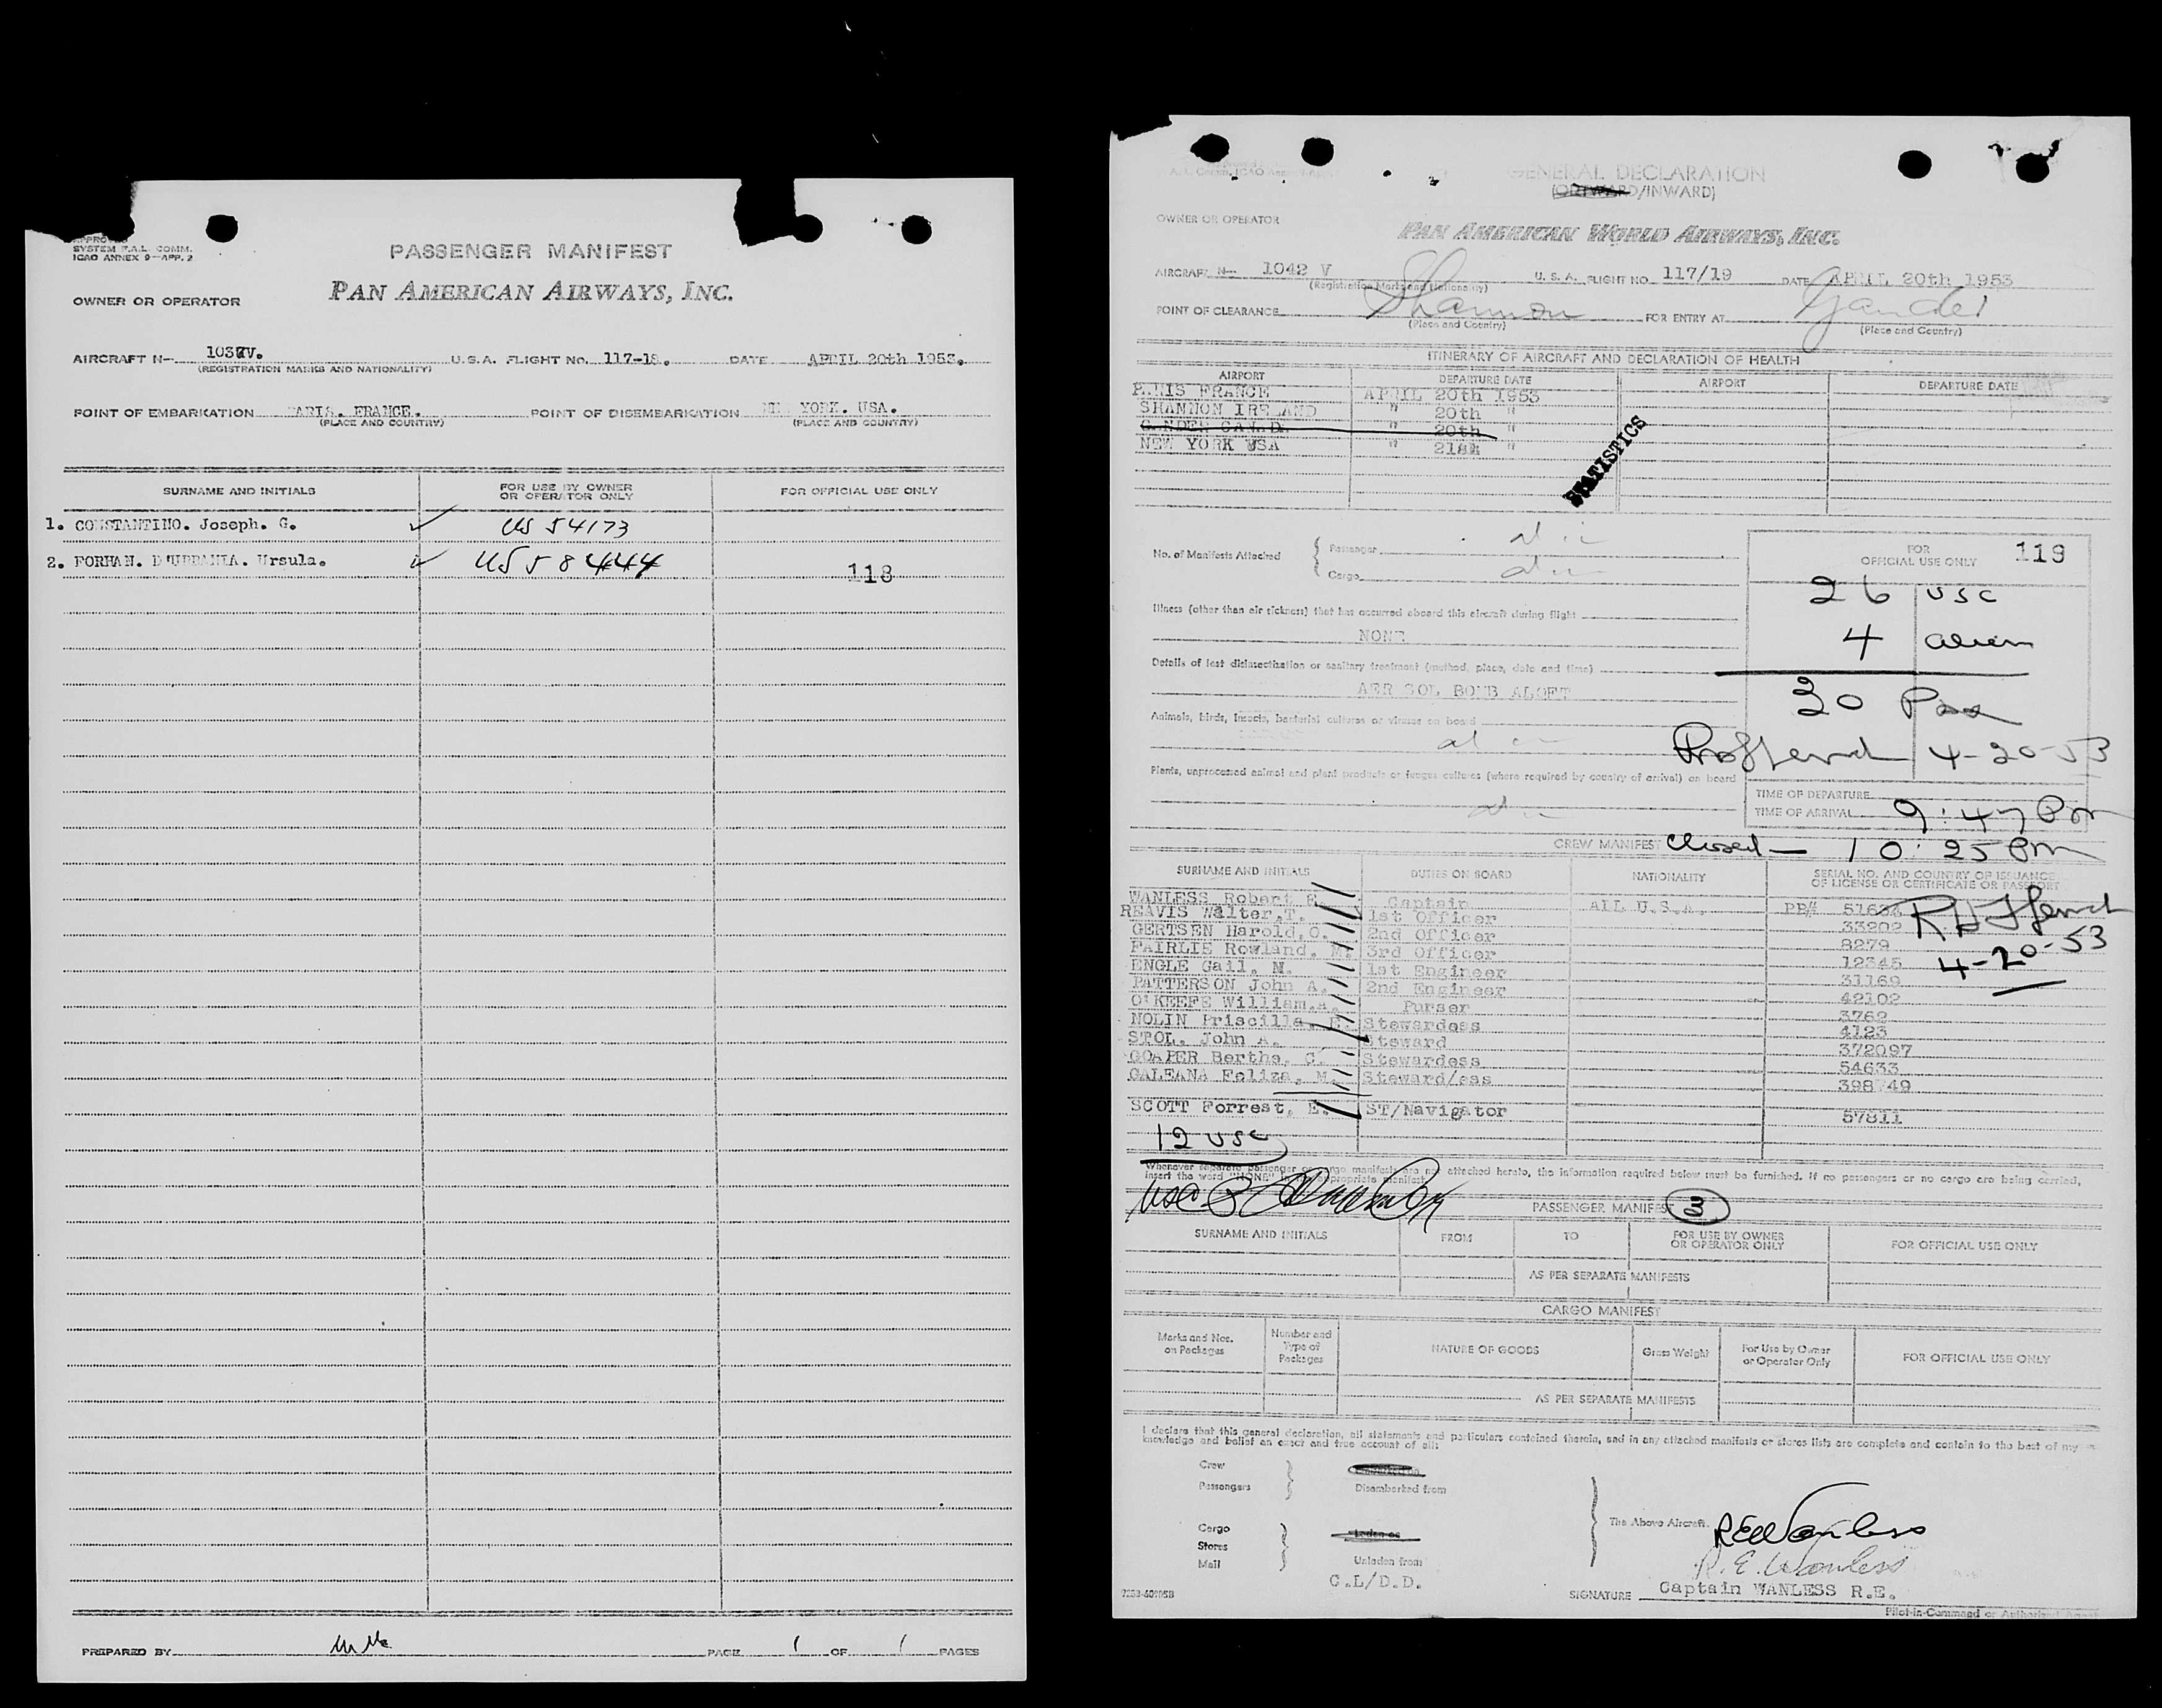 SYSTEM F.A.L. COMM.
ICAO ANNEX 9-APP. 2
PASSENGER MANIFEST
PAN AMERICAN AIRWAYS, INC.
OWNER OR OPERATOR
AIRCRAFT N- U.S.A. FLIGHT NO. DATE APRIL 20th 1953.
(REGISTRATION MARKS AND NATIONALITY)
POINT OF EMBARKATION PARIS. FRANCE. POINT OF DISEMBARKATION NEW YORK. USA.
(PLACE AND COUNTRY) (PLACE AND COUNTRY)
SURNAME AND INITIALS FOR USE BY OWNER OR OPERATOR ONLY FOR OFFICIAL USE ONLY
1. CONSTANTINO. Joseph. G. ✓ US 54173
2. Ursula. ✓ US 58444
118
PREPARED BY PAGE 1 OF 1 PAGES
GENERAL DECLARATION
(OUTWARD/INWARD)
OWNER OR OPERATOR
PAN AMERICAN WORLD AIRWAYS, INC.
AIRCRAFT N- 1042 V U.S.A. FLIGHT NO. 117/19 DATE APRIL 20th 1953
(Registration Marks and Nationality)
POINT OF CLEARANCE Shannon FOR ENTRY AT Gander
(Place and Country) (Place and Country)
ITINERARY OF AIRCRAFT AND DECLARATION OF HEALTH
AIRPORT DEPARTURE DATE AIRPORT DEPARTURE DATE
PARIS FRANCE APRIL 20th 1953
SHANNON IRELAND " 20th "
GANDER CANAD. " 20th "
NEW YORK USA " "
STATISTICS
No. of Manifests Attached { Passenger
Cargo
FOR OFFICIAL USE ONLY 119
26 USC
4 alien
30 Pax
4-20-53
Illness (other than air sickness) that has occurred aboard this aircraft during flight
NONE
Details of last disinsectization or sanitary treatment (method, place, date and time)
AEROSOL BOMB ALOFT
Animals, birds, insects, bacterial cultures or viruses on board
Plants, unprocessed animal and plant products or fungus cultures (where required by country of arrival) on board
TIME OF DEPARTURE
TIME OF ARRIVAL 9:47 Pm
CREW MANIFEST Closed — 10:25 Pm
SURNAME AND INITIALS DUTIES ON BOARD NATIONALITY SERIAL NO. AND COUNTRY OF ISSUANCE OF LICENSE OR CERTIFICATE OR PASSPORT
WANLESS Robert E. Captain ALL U.S.A.
REAVIS Walter,T. 1st Officer 33202
GERTSEN Harold,O. 2nd Officer 8279
FAIRLIE Rowland, M. 3rd Officer 12345
ENGLE Gail, M. 1st Engineer 31169
PATTERSON John A. 2nd Engineer 42102
O'KEEFE William.A. Purser 3762
NOLIN Priscilla, Stewardess 4123
STOL. John A. Steward 372097
Bertha, C. Stewardess 54633
GALEANA Feliza, M. Steward/ess
SCOTT Forrest, E. ST/Navigator 57811
4-20-53
12 USC
Whenever separate passenger or cargo manifests are not attached hereto, the information required below must be furnished. If no passengers or no cargo are being carried,
insert the word "NONE" in appropriate manifest.
PASSENGER MANIFEST 3
SURNAME AND INITIALS FROM TO FOR USE BY OWNER OR OPERATOR ONLY FOR OFFICIAL USE ONLY
AS PER SEPARATE MANIFESTS
CARGO MANIFEST
Marks and Nos. on Packages Number and Type of Packages NATURE OF GOODS Gross Weight For Use by Owner or Operator Only FOR OFFICIAL USE ONLY
AS PER SEPARATE MANIFESTS
I declare that this general declaration, all statements and particulars contained therein, and in any attached manifests or stores lists are complete and contain to the best of my
knowledge and belief an exact and true account of all:
Crew
Passengers Disembarked from
The Above Aircraft.
Cargo
Stores
Mail Unladen from
G.L/D.D.
R E Wanless
R. E. Wanless
SIGNATURE Captain WANLESS R.E.
Pilot-in-Command or Authorized Agent